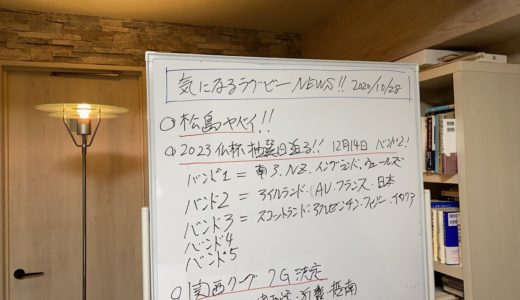 気になるラグビーNEWS!! 2020/10/28
松島ヤバイ!!
2023仏杯 抽選日迫る!! 12月14日 バンド2!
バンド1 = 南ア、N.Z、イングランド、ウェールズ
バンド2 = アイルランド、AU、フランス、日本
バンド3 = スコットランド、アルゼンチン、フィジー、イタリア
バンド4
バンド5
関西リーグ 決定